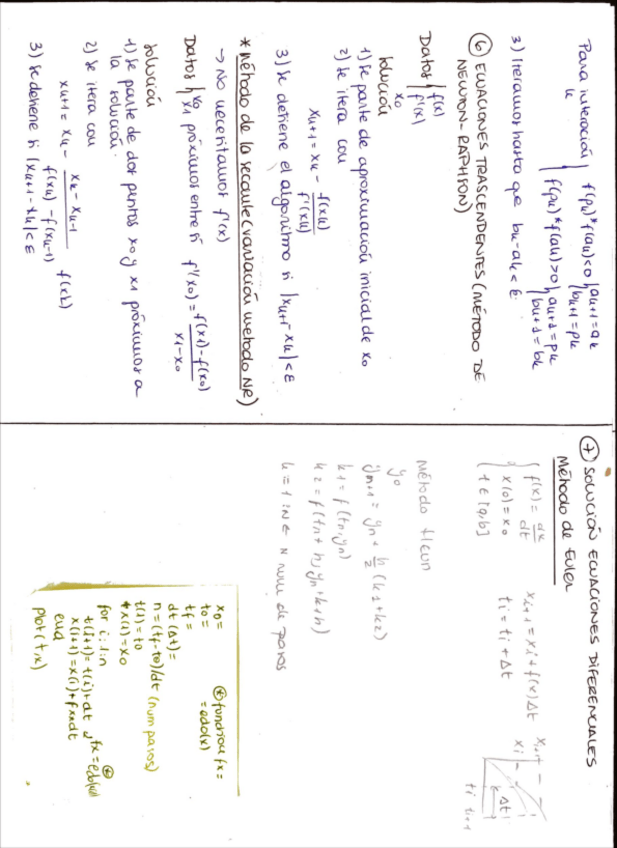 Para interacción k { f(pk)*f(ak)<0 { ak+1=ak
bk+1=pk
f(pk)*f(ak)>0 { ak+1=pk
bk+1=bk
3) Iteramos hasta que bk-ak<ε
⑥ ECUACIONES TRASCENDENTES (MÉTODO DE
NEWTON-RAPHSON)
Datos { f(x)
f'(x)
x0
Solución
1) Se parte de aproximación inicial de x0
2) Se itera con
xk+1 = xk - f(xk)/f'(xk)
3) Se detiene el algoritmo si |xk+1-xk|<ε
* Método de la secante (variación metodo NR)
→ No necesitamos f'(x)
Datos { x0
x1 próximos entre si f'(x0) = f(x1)-f(x0)/x1-x0
Solución
1) Se parte de dos puntos x0 y x1 próximos a
la solución.
2) Se itera con
xk+1 = xk - xk-xk-1/f(xk)-f(xk-1) f(xk)
3) Se detiene si |xk+1-xk|<ε
⑦ SOLUCIÓN ECUACIONES DIFERENCIALES
Método de Euler
{ f(x) = dx/dt
x(0) = x0
t ∈ [a,b]
xi+1 = xi + f(x)Δt
ti = ti + Δt
xi+1
xi
Δt
ti ti+1
Método Heun
y0
yn+1 = yn + h/2 (k1+k2)
k1 = f(tn,yn)
k2 = f(tn+h, yn+k1h)
i = 1:N ∈ N num de pasos
x0=
t0=
tf=
dt(Δt)=
n=(tf-t0)/dt (num pasos)
t(1)=t0
+x(1)=x0
for i:1:n
t(i+1)=t(i)+dt
fx=edo(x(i))
x(i+1)=x(i)+fx*dt
end
plot(t,x)
⊛ function fx=
=edo(x)